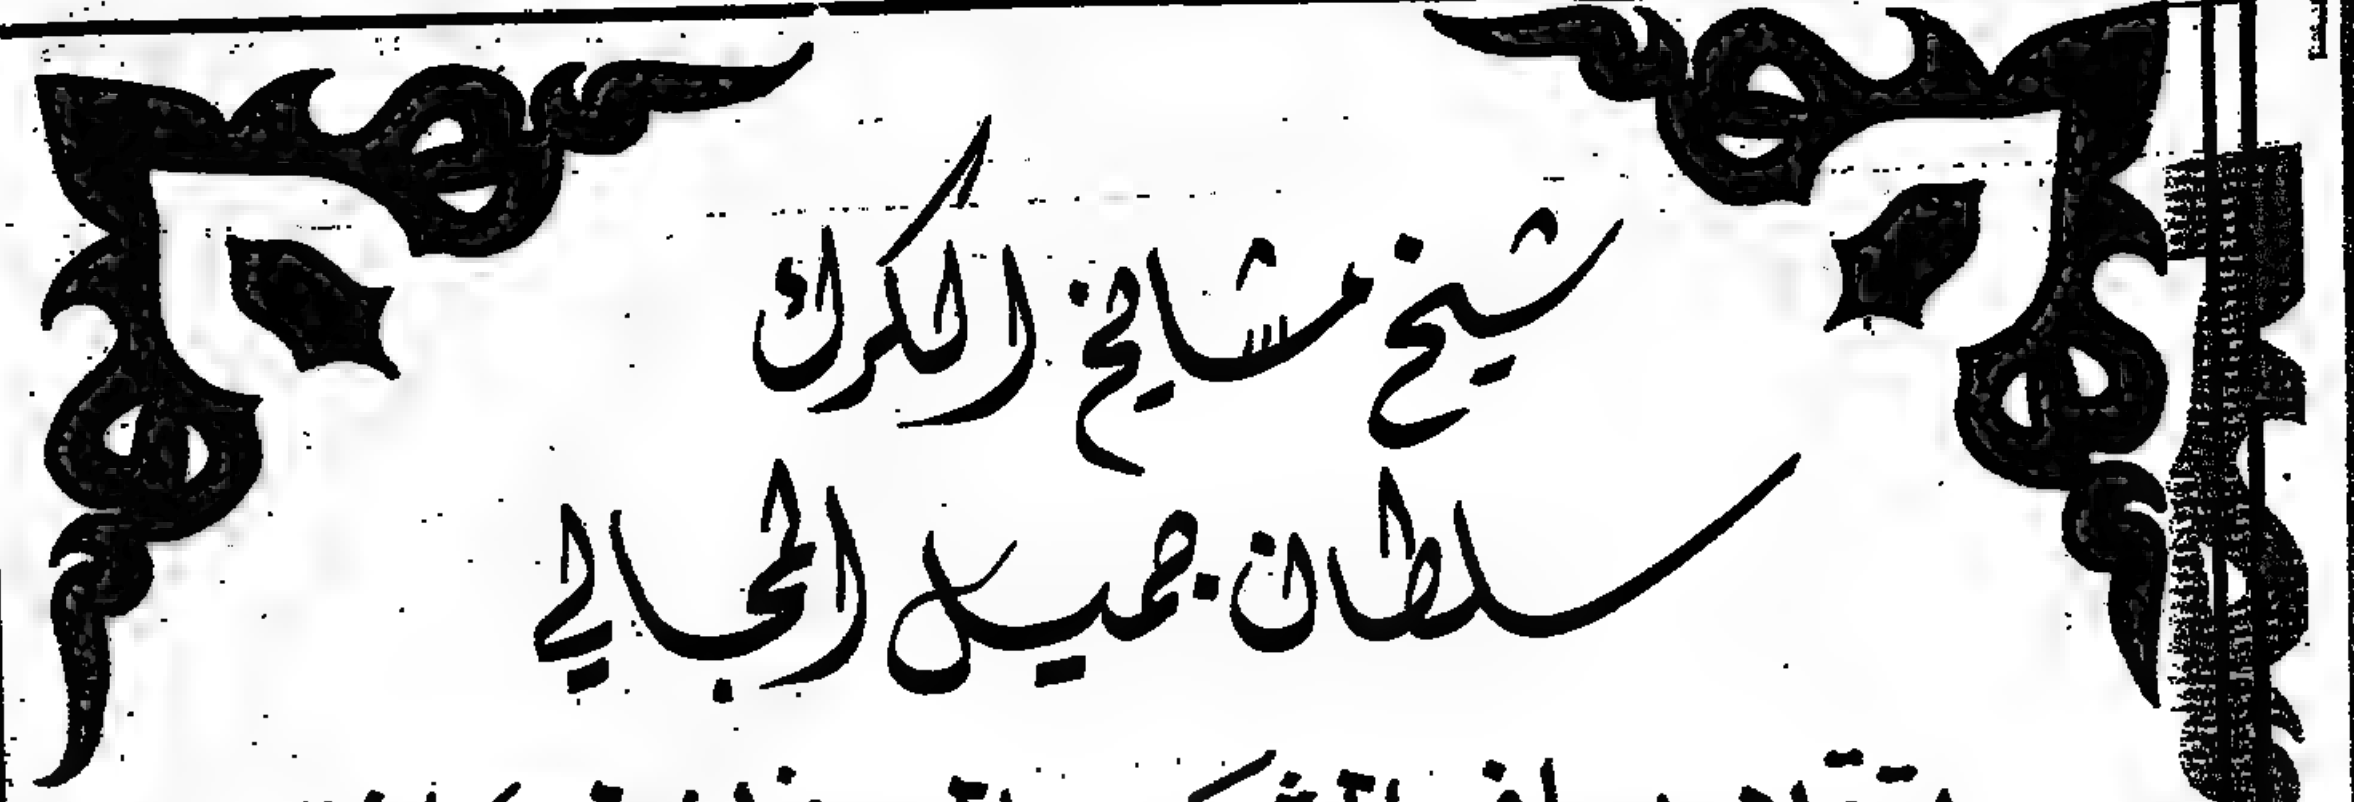 شيخ مشايخ الكرك
سلطان جميل المجالي